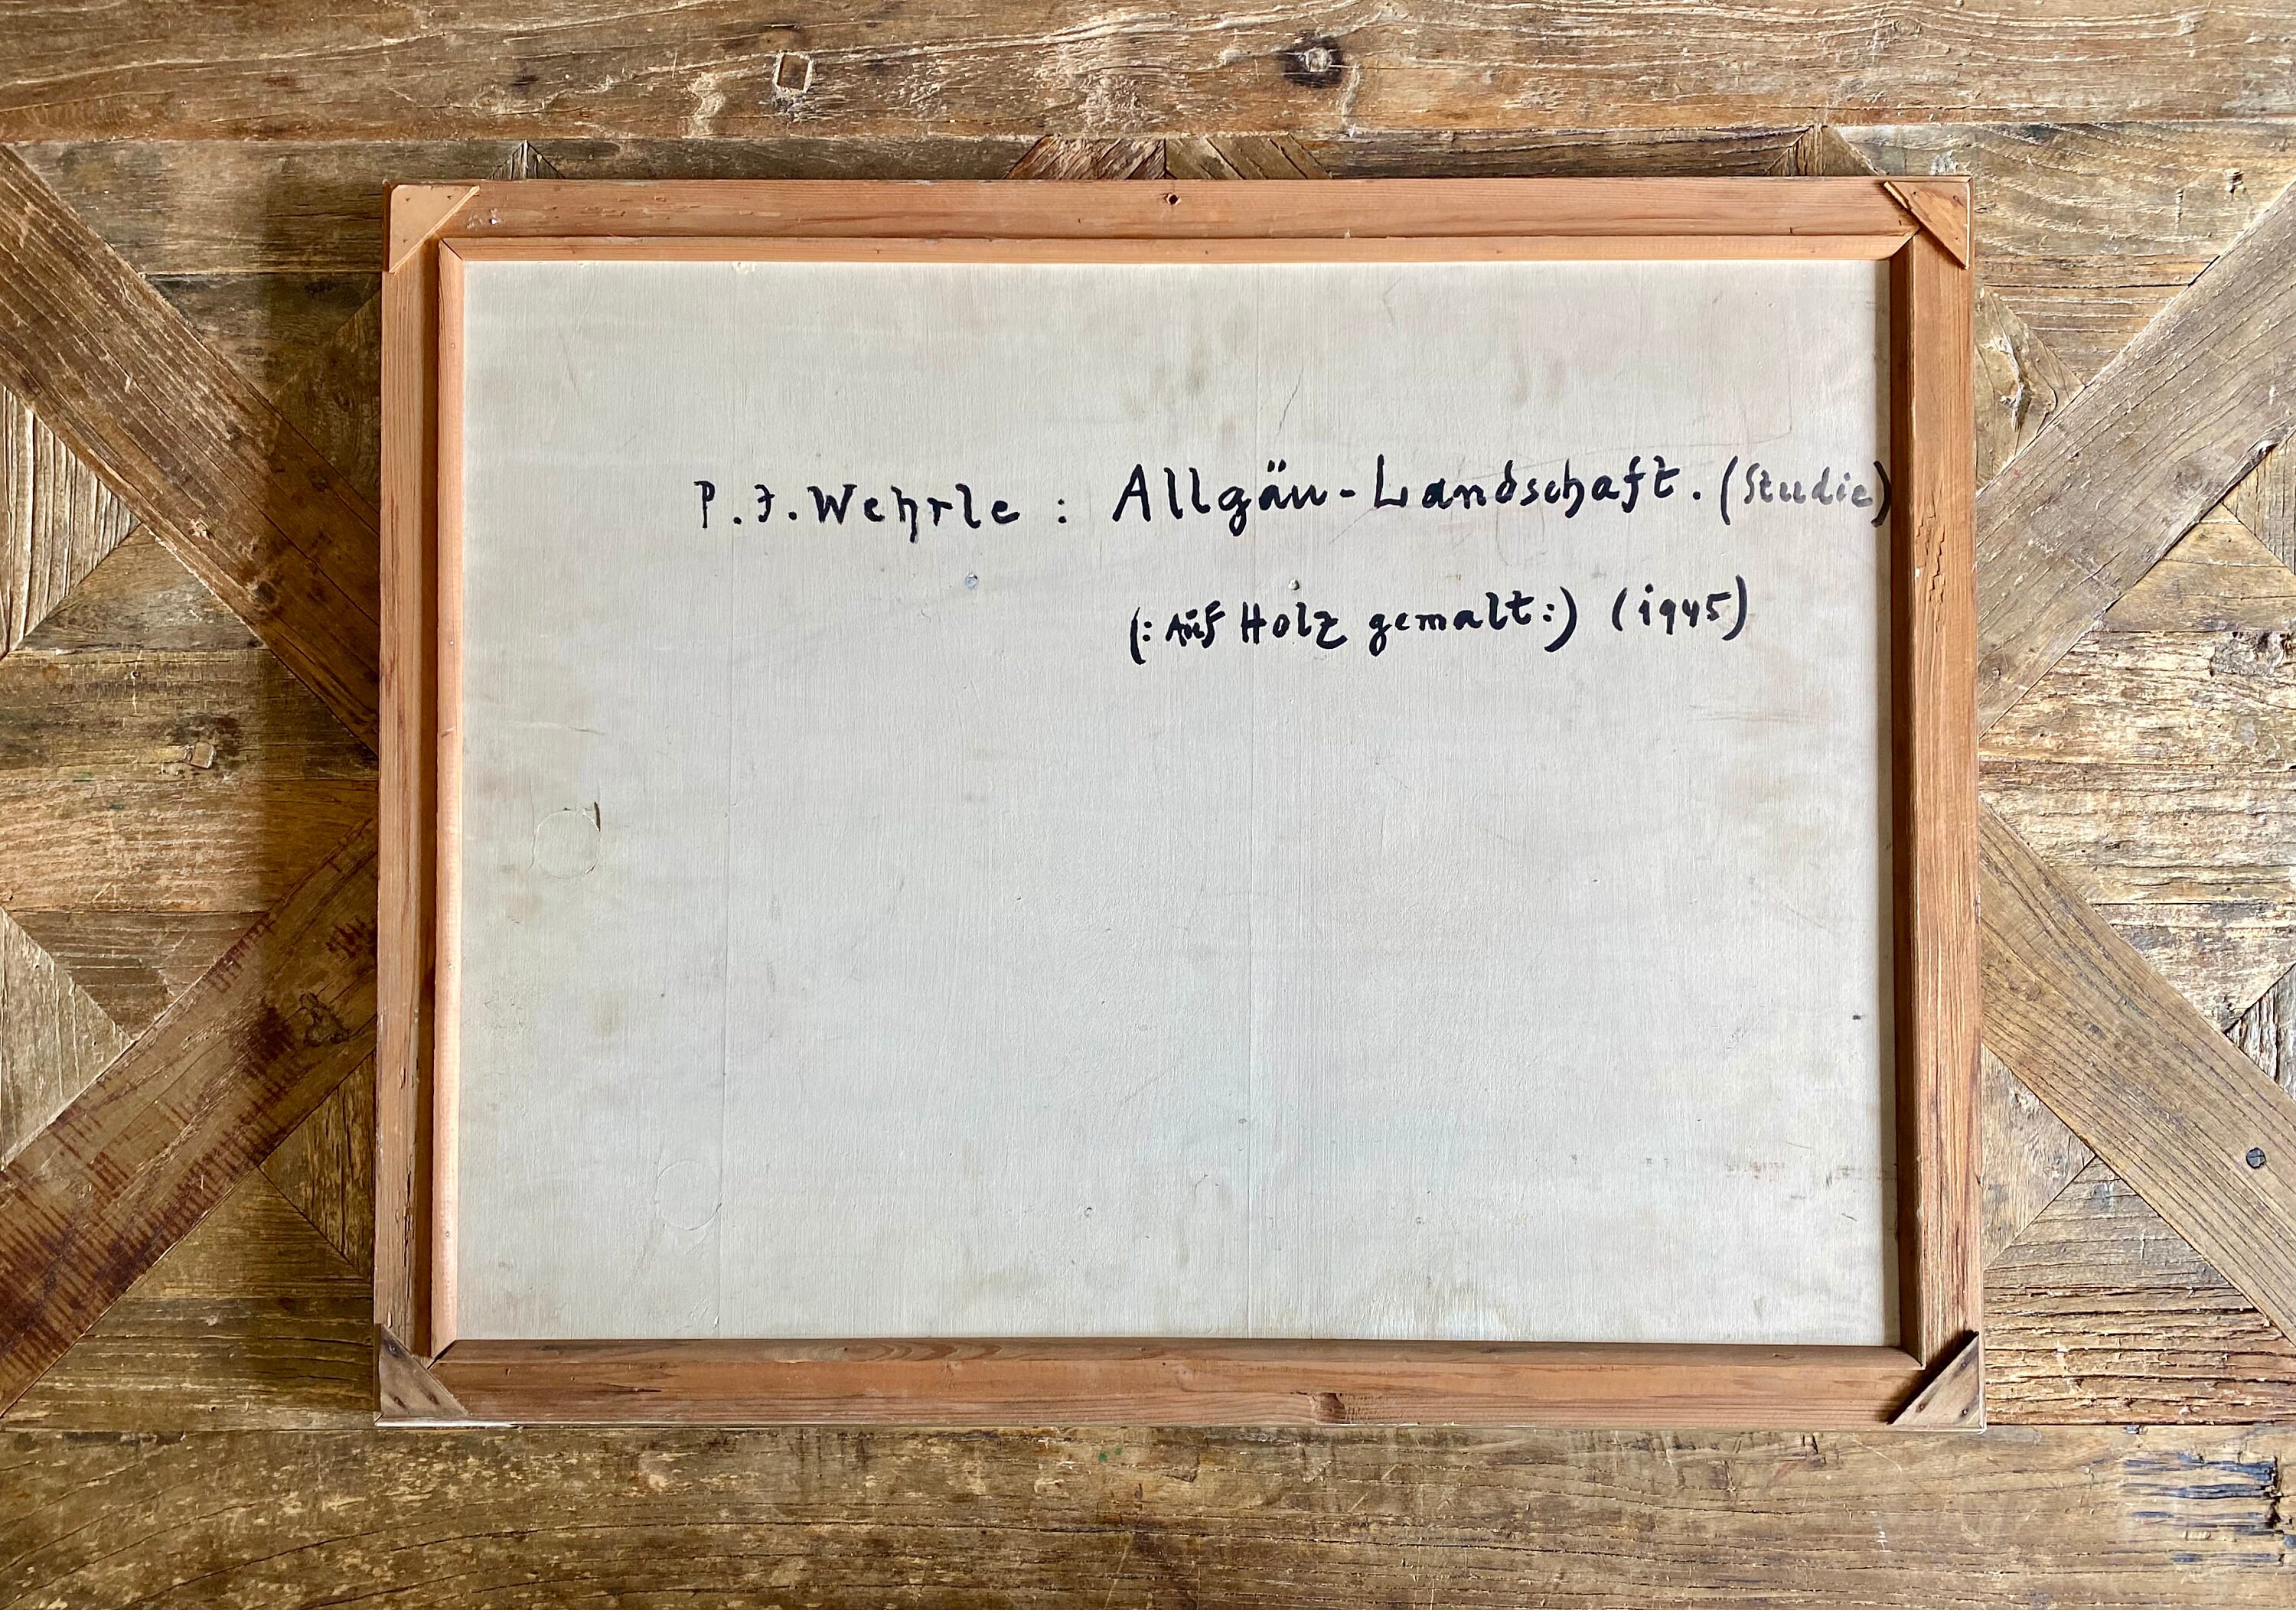 P. J. Wehrle : Allgäu-Landschaft. (Studie)
(: Auf Holz gemalt :) (1945)